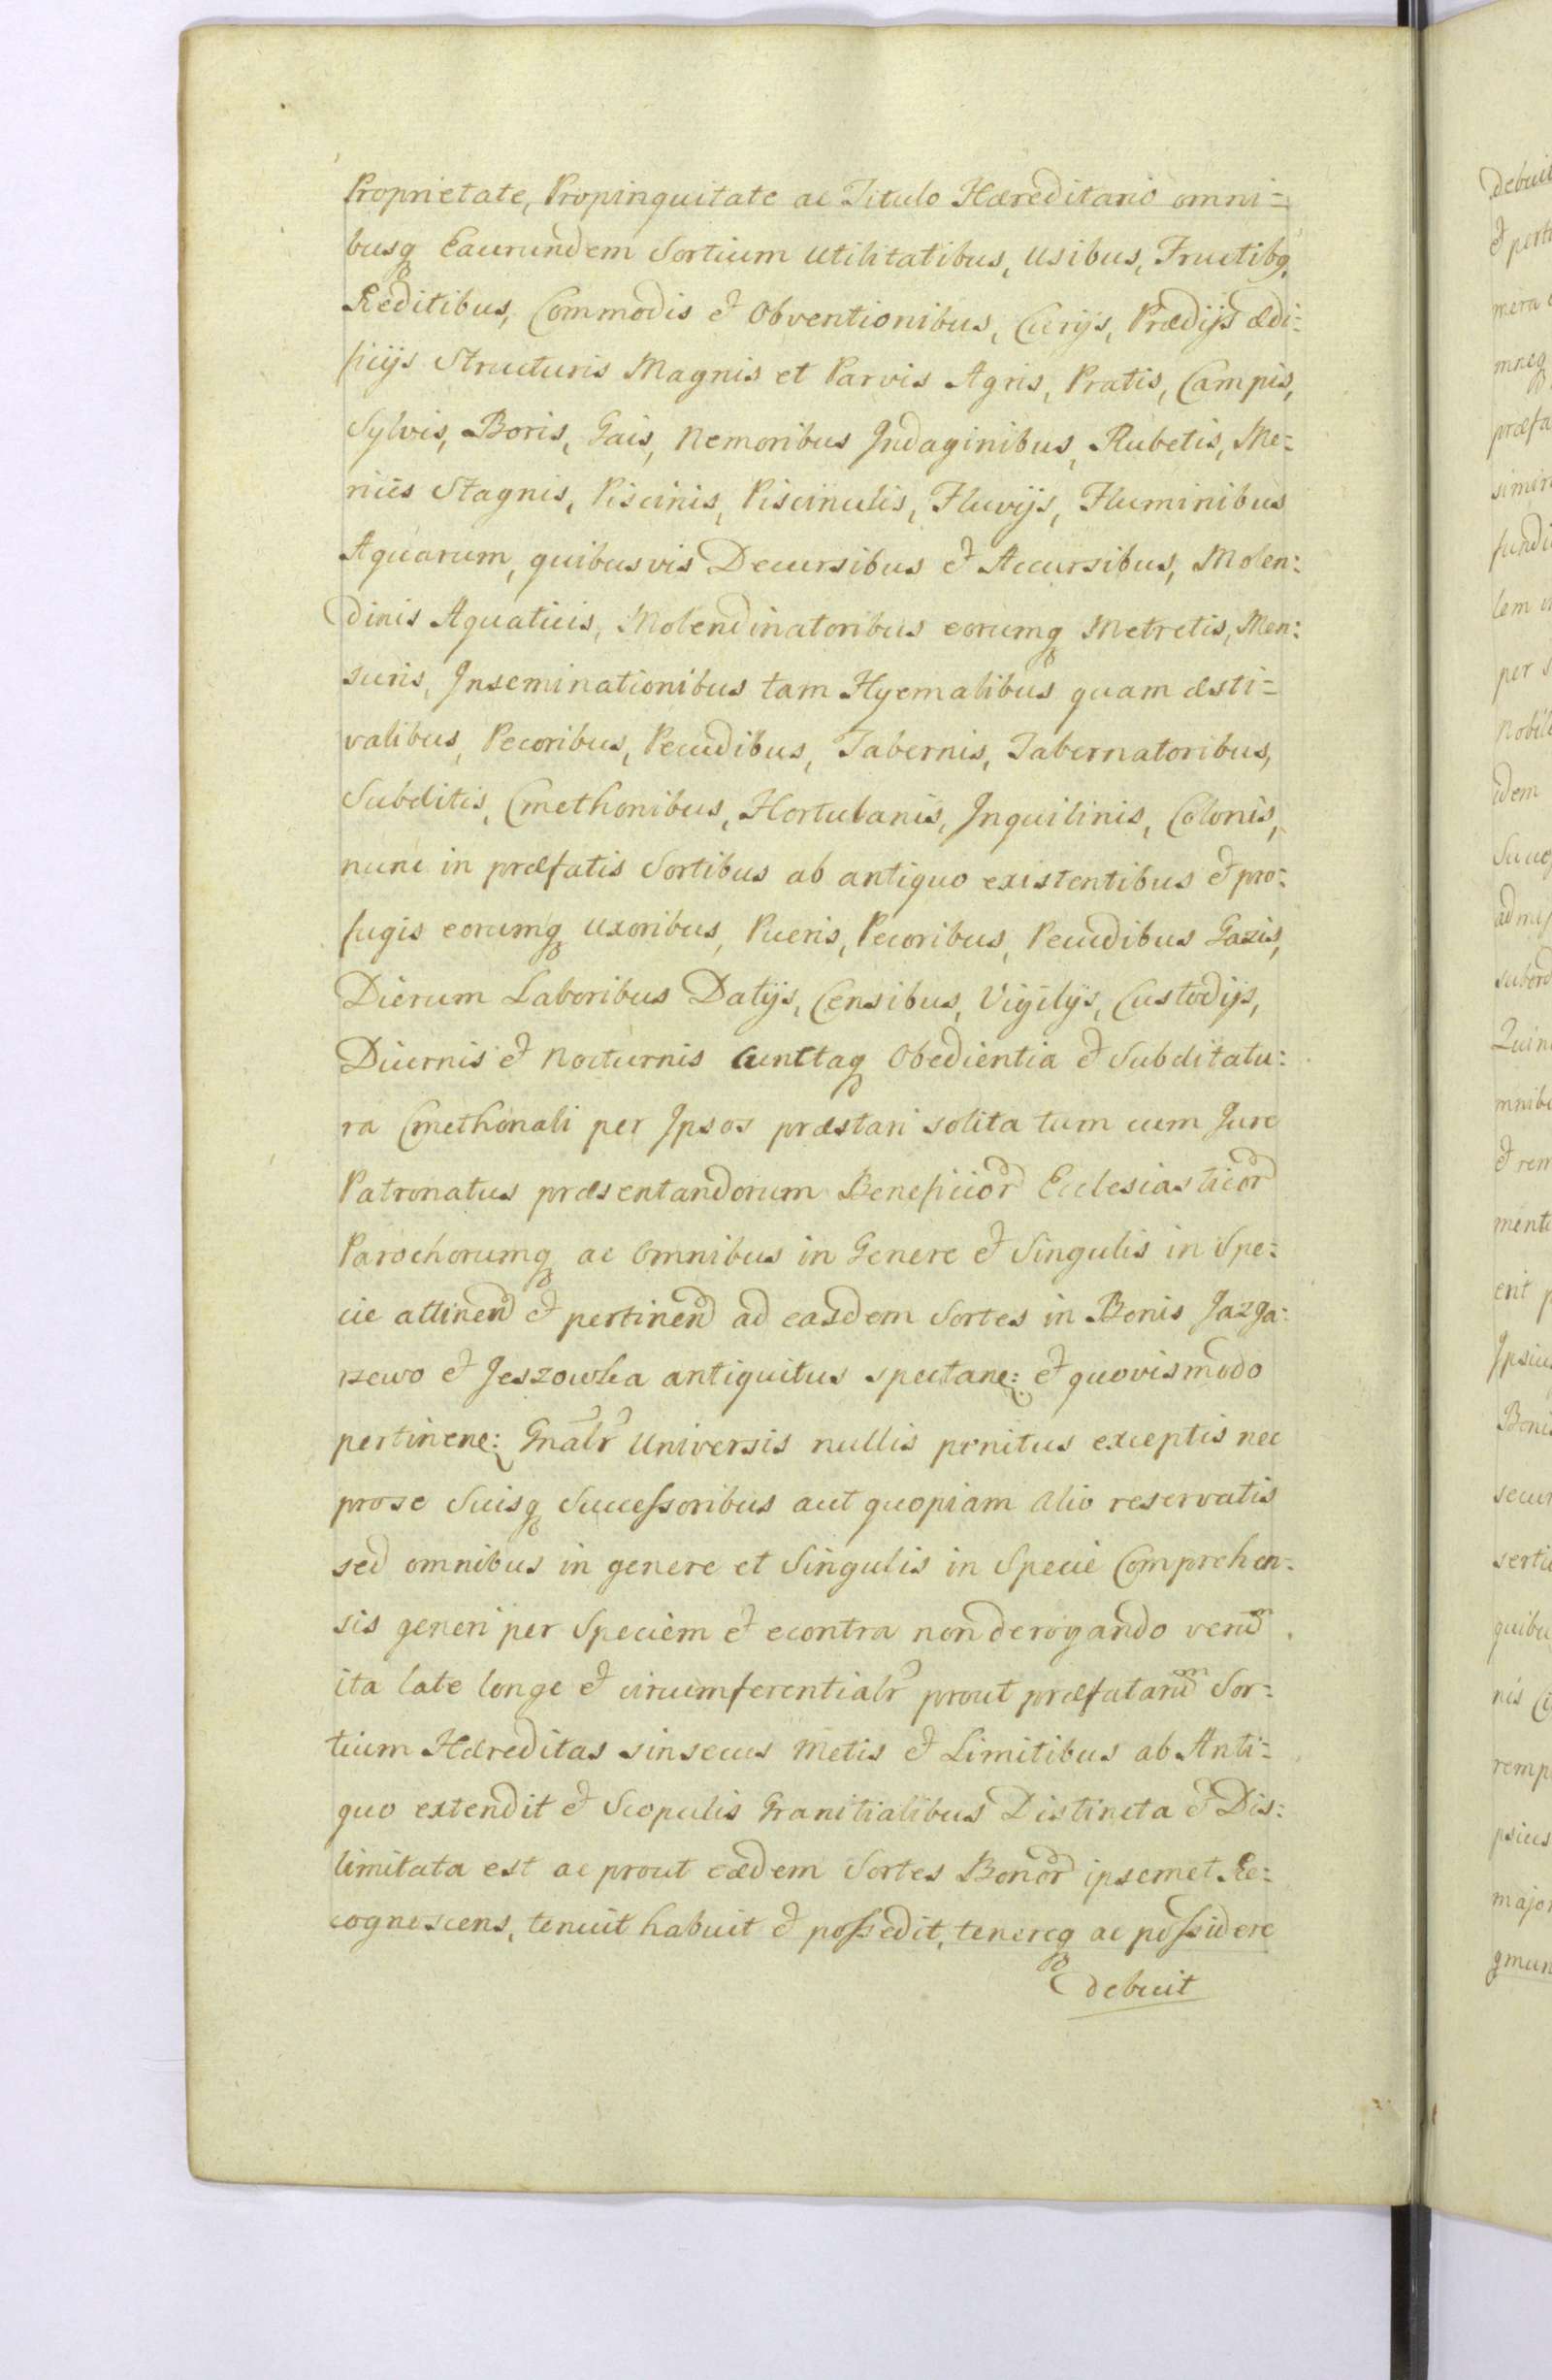 Proprietate, Propinquitate ac Titulo Hæreditario omni=
busq Earundem Sortium Utilitatibus, Usibus, Fructibq,
Reditibus, Commodis et Obventionibus, Curijs, Prædijs ædi:
ficijs Structuris Magnis et Parvis Agris, Pratis, Campis,
Sylvis, Boris, Gais, Nemoribus Indaginibus, Rubetis, Me=
ricis Stagnis, Piscinis, Piscinulis, Fluvijs, Fluminibus
Aquarum, quibusvis Decursibus et Accursibus, Molen:
dinis Aquaticis, Molendinatoribus eorumq Metretis, Men:
suris, Inseminationibus tam Hyemalibus quam æsti=
valibus, Pecoribus, Pecudibus, Tabernis, Tabernatoribus,
Subditis, Cmethonibus, Hortulanis, Inquilinis, Colonis,
nunc in præfatis Sortibus ab antiquo existentibus et pro:
fugis eorumq Uxoribus, Pueris, Pecoribus, Pecudibus Gazis,
Dierum Laboribus Datijs, Censibus, Vigilijs, Custodijs,
Diurnis et Nocturnis Cunctaq Obedientia et Subditatu:
ra Cmethonali per Ipsos præstari solita tum cum Jure
Patronatus præsentandorum Beneficior Ecclesiasticor
Parochorumq ac Omnibus in Genere et Singulis in Spe:
cie attinen et pertinen ad easdem Sortes in Bonis Jazga:
rzewo et Jeszowka antiquitus spectane: et quovismodo
pertinene: Gnalr Universis nullis penitus exceptis nec
prose Suisq Successoribus aut quopiam alio reservatis
sed omnibus in genere et Singulis in Specie Comprehen=
sis generi per Speciem et econtra non derogando vend
ita late longe et circumferentialr prout præfatarū Sor=
tium Hæreditas sinsecus Metis et Limitibus ab Anti=
quo extendit et Scopulis Granitialibus Distincta et Dis:
limitata est ac prout eædem Sortes Bonor ipsemet Re:
cognoscens, tenuit habuit et possedit, tenereq ac possidere
debuit